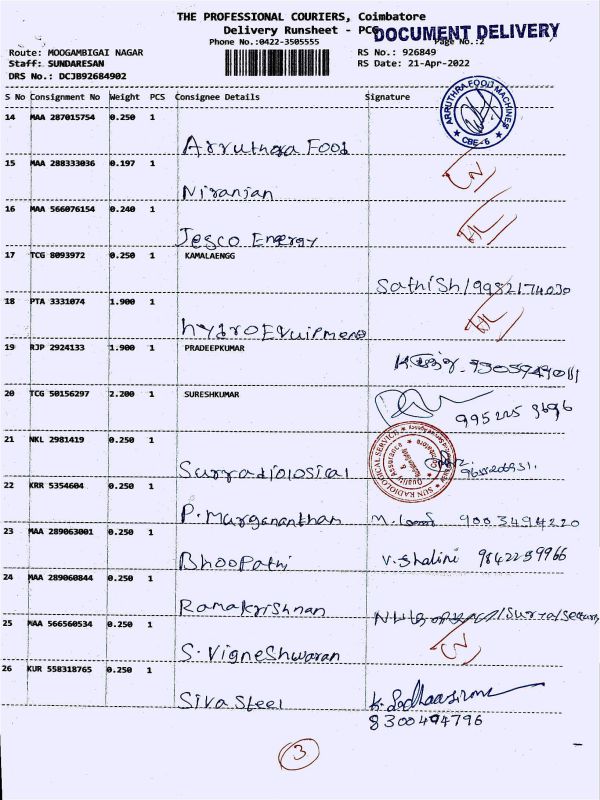 THE PROFESSIONAL COURIERS, Coimbatore
Delivery Runsheet - PCG
DOCUMENT DELIVERY
Phone No.:0422-3505555
Page No.:2
Route: MOOGAMBIGAI NAGAR
RS No.: 926849
Staff: SUNDARESAN
RS Date: 21-Apr-2022
DRS No.: DCJB92684902
S No Consignment No Weight PCS Consignee Details Signature
14 MAA 287015754 0.250 1
Arruthgra Food
ARRUTHRA FOOD MACHINES
CBE-6
15 MAA 288333036 0.197 1
Niranjan
CN
16 MAA 566076154 0.240 1
Jesco Energy
HL
17 TCG 8093972 0.250 1 KAMALAENGG
Sathish/9982174030
18 PTA 3331074 1.900 1
hydroEquipment
HL
19 RJP 2924133 1.900 1 PRADEEPKUMAR
20 TCG 50156297 2.200 1 SURESHKUMAR
995225 9696
21 NKL 2981419 0.250 1
Surradiological
SUN RADIOLOGICAL SERVICE
22 KRR 5354604 0.250 1
P. Murgananthan
9003494220
23 MAA 289063001 0.250 1
Bhoopathi
V. Shalini 9842259966
24 MAA 289060844 0.250 1
Ramakrishnan
/Surya/Security
25 MAA 566560534 0.250 1
S. Vigneshwaran
CN
26 KUR 558318765 0.250 1
Siva Steel
8300494796
3